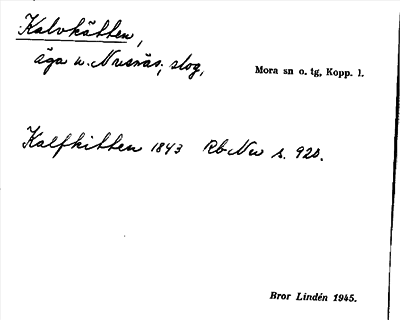 Kalvkätten,
äga u. Nusnäs; slog,
Mora sn o. tg, Kopp. l.
Kalfkitten 1843 Rb Nu s. 920.
Bror Lindén 1945.